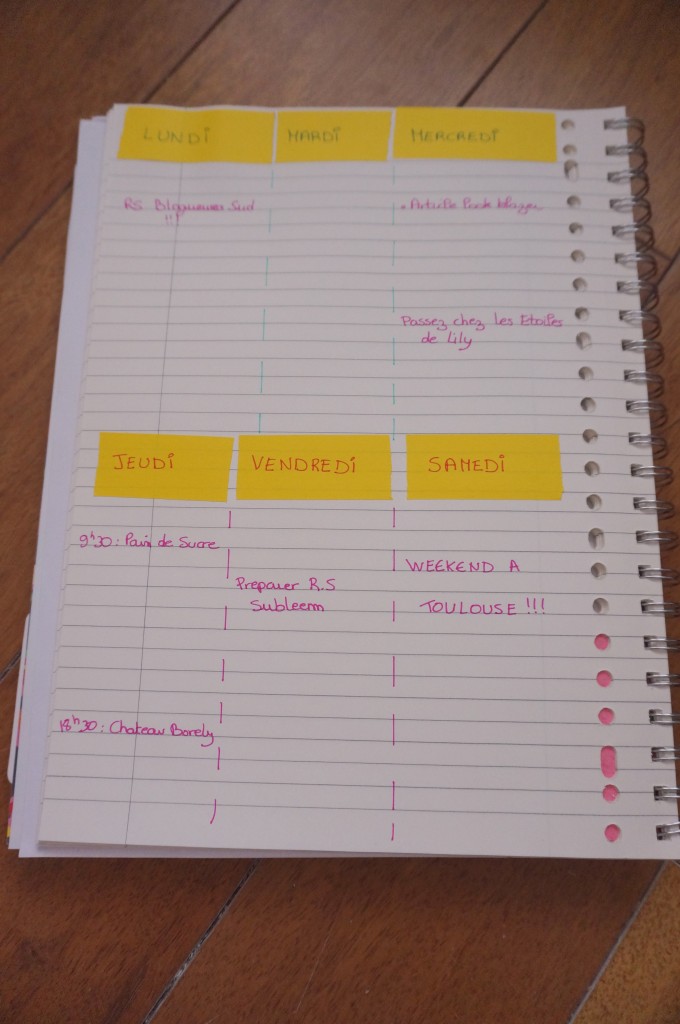 LUNDI
MARDI
MERCREDI
RS Blogueuses Sud
!!!
. Article
Passez chez les Etoiles
de Lily
JEUDI
VENDREDI
SAMEDI
9h30: Pain de Sucre
Preparer R.S
Subleem
WEEKEND A
TOULOUSE !!!
18h30: Chateau Borely